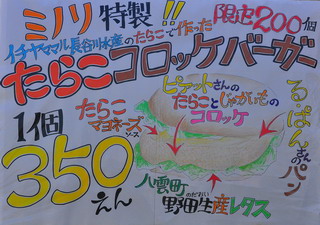 ミノリ特製!! 限定200個
イチヤママル長谷川水産のたらこで作った
たらこコロッケバーガー
1個
350
えん
ピケットさんの
たらことじゃがいもの
コロッケ
たらこ
マヨネーズ
ソース
る・ぱんさん
パン
八雲町
野田生産レタス
のだおい